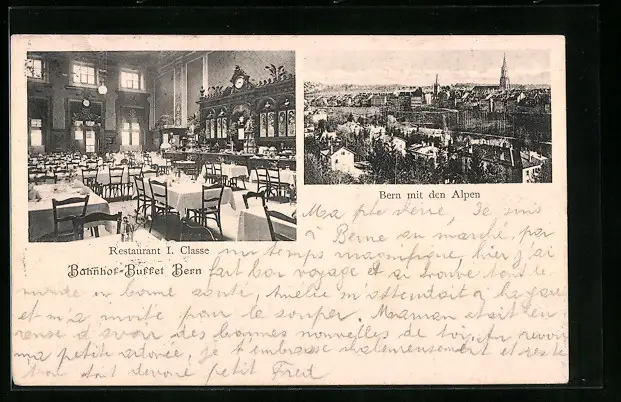 Restaurant I. Classe
Bahnhof-Buffet Bern
Bern mit den Alpen
Ma chérie, Je suis
à Berne au marché, par
un temps magnifique, hier j'ai
fait bon voyage et ai trouvé tout le
monde en bonne santé, Amélie m'attendait à la gare
et m'a invité pour le souper. Maman était heu
reuse d'avoir des bonnes nouvelles de toi. Au revoir
ma petite adorée, je t'embrasse et reste
ton tout dévoué petit Fred